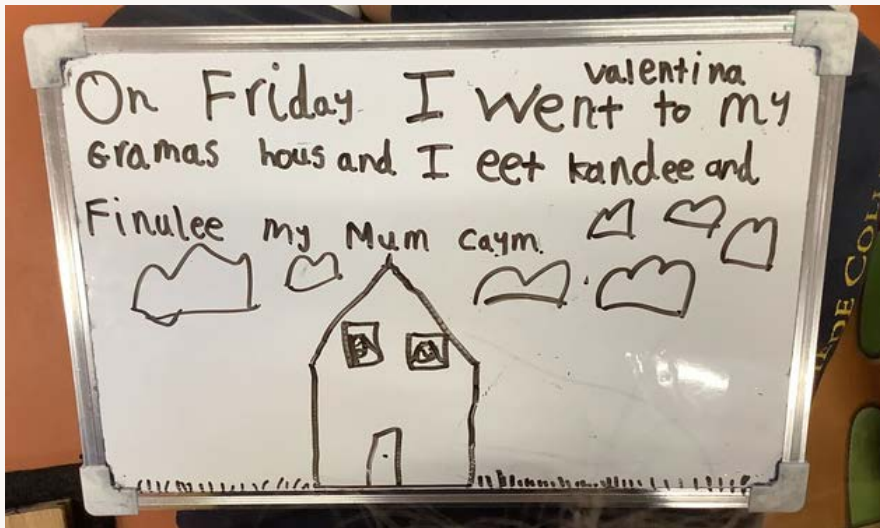 valentina
On Friday I went to my
Gramas hous and I eet kandee and
Finulee my Mum caym.